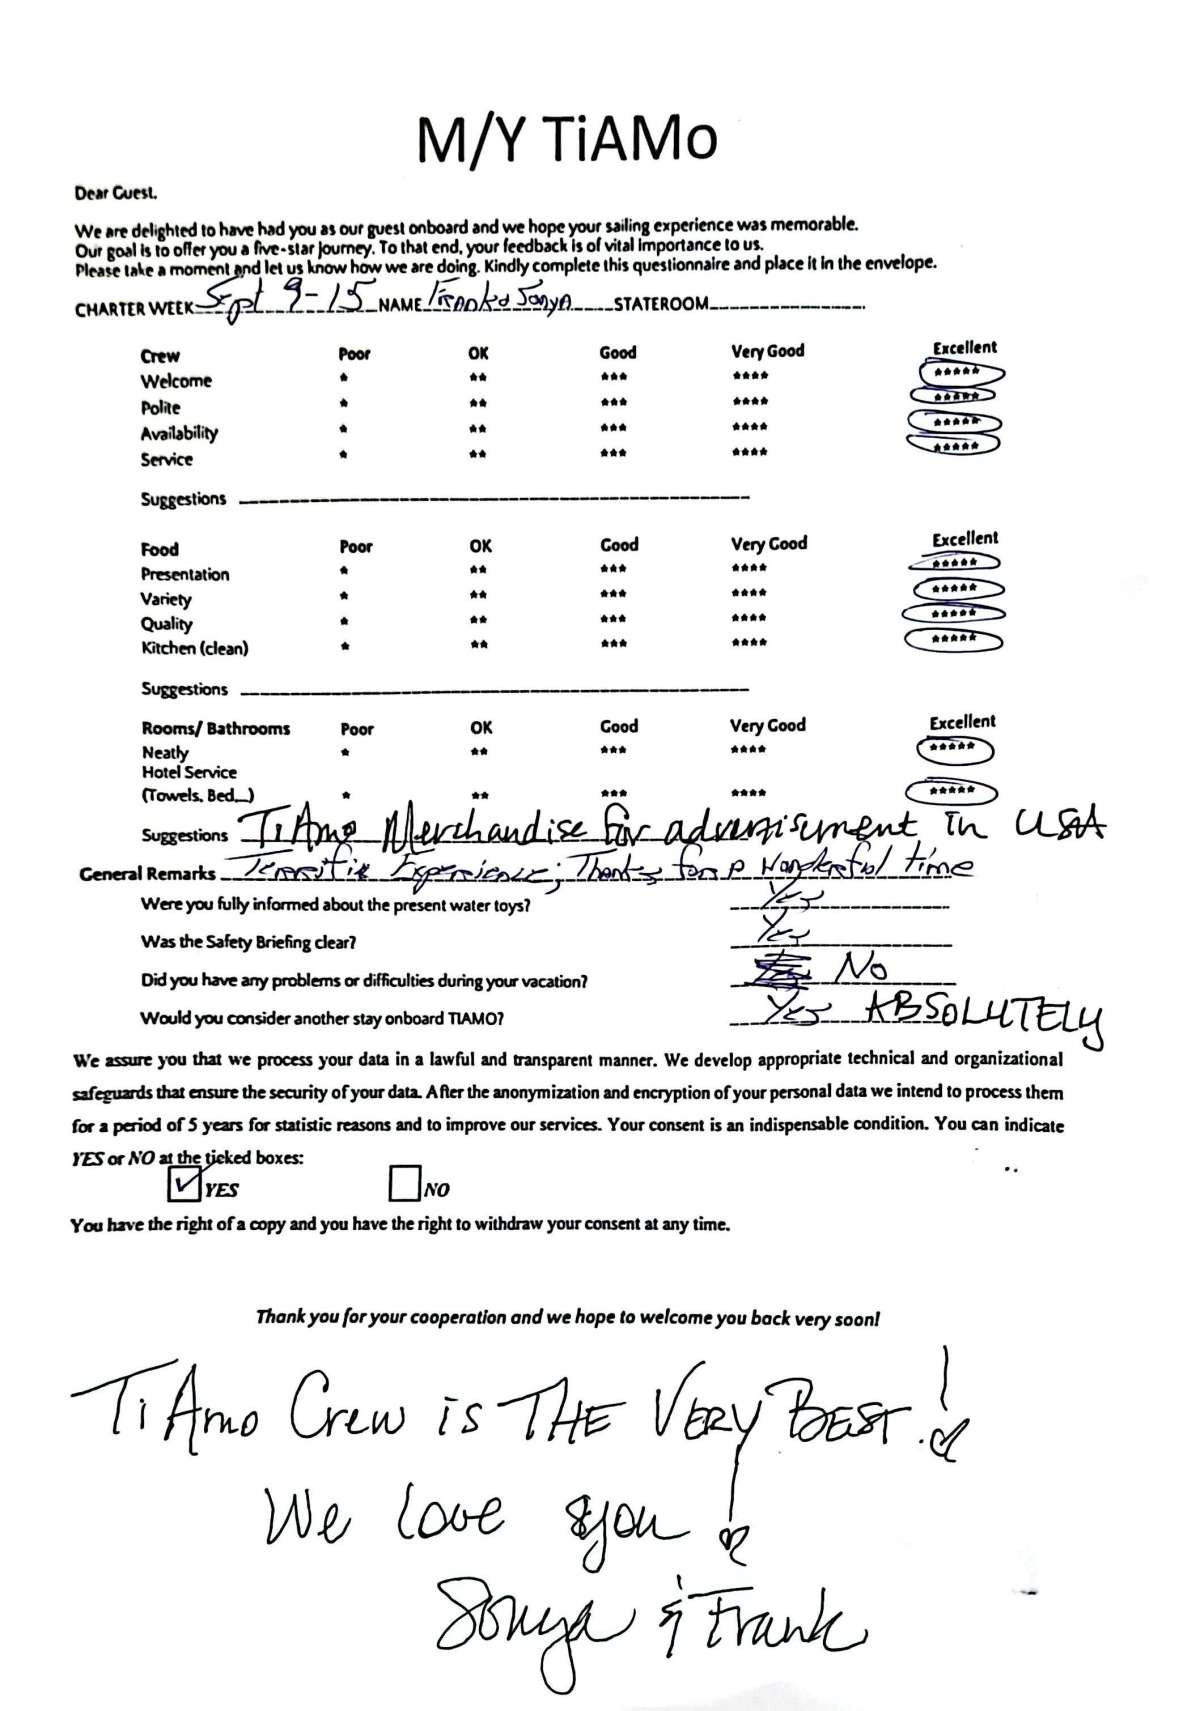 M/Y TiAMo
Dear Guest,
We are delighted to have had you as our guest onboard and we hope your sailing experience was memorable.
Our goal is to offer you a five-star journey. To that end, your feedback is of vital importance to us.
Please take a moment and let us know how we are doing. Kindly complete this questionnaire and place it in the envelope.
CHARTER WEEK Sept 9-15 NAME Frank & Sonya STATEROOM
Crew Poor OK Good Very Good Excellent
Welcome * ** *** **** *****
Polite * ** *** **** *****
Availability * ** *** **** *****
Service * ** *** **** *****
Suggestions
Food Poor OK Good Very Good Excellent
Presentation * ** *** **** *****
Variety * ** *** **** *****
Quality * ** *** **** *****
Kitchen (clean) * ** *** **** *****
Suggestions
Rooms/ Bathrooms Poor OK Good Very Good Excellent
Neatly * ** *** **** *****
Hotel Service
(Towels, Bed...) * ** *** **** *****
Suggestions TiAmo Merchandise for advertisement in USA
General Remarks Terrific Experience; Thanks for a wonderful time
Were you fully informed about the present water toys? Yes
Was the Safety Briefing clear? Yes
Did you have any problems or difficulties during your vacation? No
Would you consider another stay onboard TIAMO? Yes ABSOLUTELY
We assure you that we process your data in a lawful and transparent manner. We develop appropriate technical and organizational
safeguards that ensure the security of your data. After the anonymization and encryption of your personal data we intend to process them
for a period of 5 years for statistic reasons and to improve our services. Your consent is an indispensable condition. You can indicate
YES or NO at the ticked boxes:
YES NO
You have the right of a copy and you have the right to withdraw your consent at any time.
Thank you for your cooperation and we hope to welcome you back very soon!
TiAmo Crew is THE VERY BEST!
We love you!
Sonya & Frank